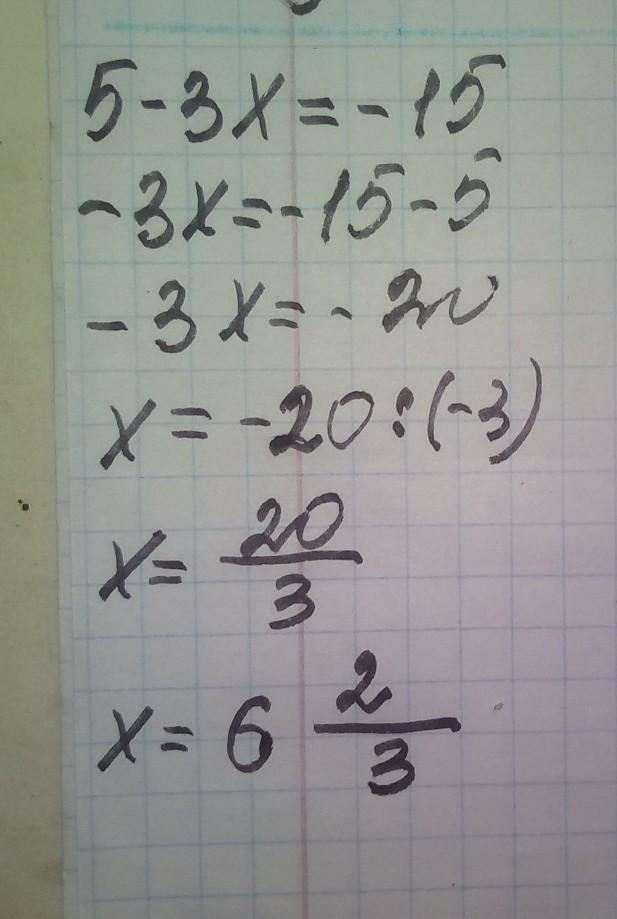 5-3x=-15
-3x=-15-5
-3x=-20
x=-20:(-3)
x=20/3
x=6 2/3